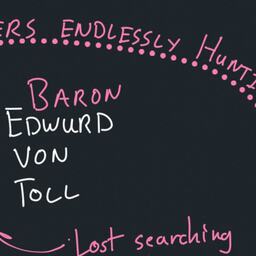 ERS ENDLESSLY HUNTI
BARON
EDWURD
VON
TOLL
Lost searching